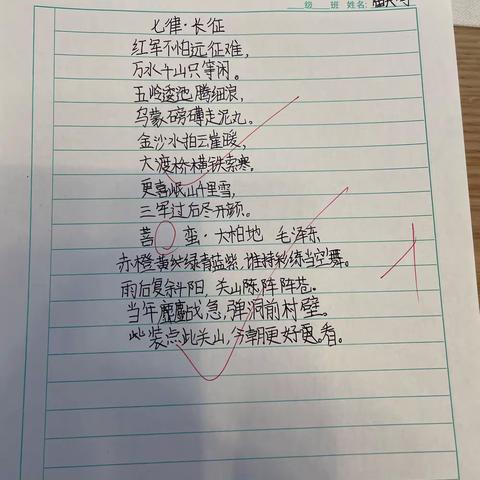 级 班 姓名:
七律·长征
红军不怕远征难,
万水千山只等闲。
五岭逶迤腾细浪,
乌蒙磅礴走泥丸。
金沙水拍云崖暖,
大渡桥横铁索寒。
更喜岷山千里雪,
三军过后尽开颜。
菩 蛮·大柏地 毛泽东
赤橙黄绿青蓝紫,谁持彩练当空舞。
雨后复斜阳,关山阵阵苍。
当年鏖战急,弹洞前村壁。
此装点此关山,今朝更好看。